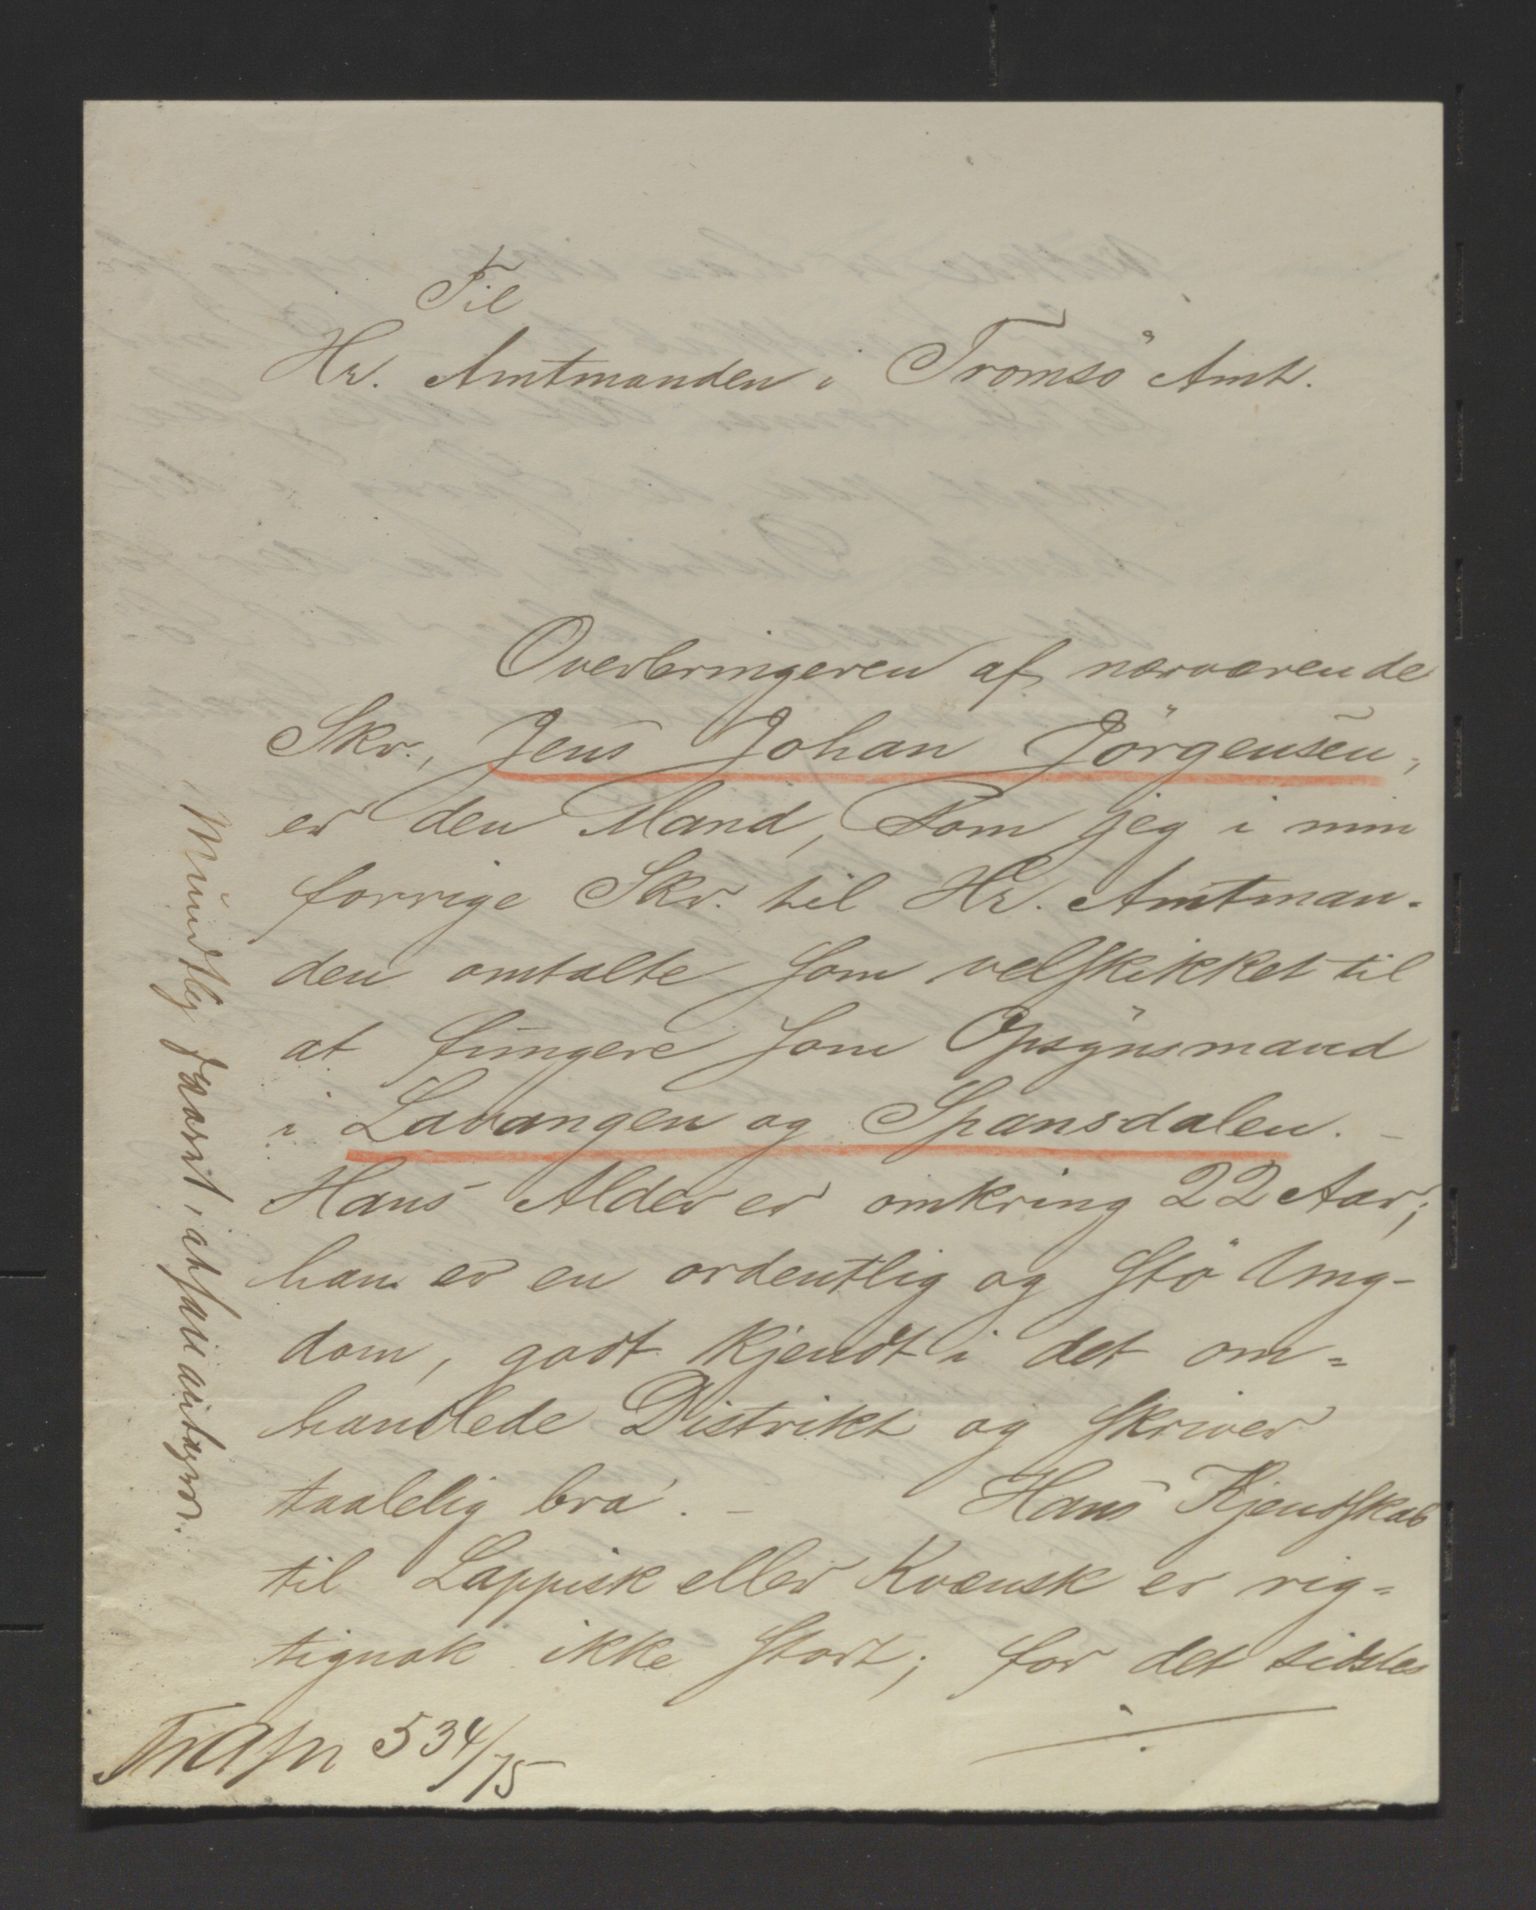 Til
Hr. Amtmanden i Tromsö Amt.
Overbringeren af nærværende
Skr., Jens Johan Jörgensen,
er den Mand, som jeg i min
forrige Skr. til Hr. Amtman-
den omtalte som velskikket til
at fungere som Opsynsmand
i Lavangen og Spansdalen. –
Hans Alder er omkring 22 Aar;
han er en ordentlig og stö Ung-
dom, godt kjendt i det om=
handlede Distrikt og skriver
taalelig bra. – Hans Kjendskab
til Lappisk eller Kvænsk er rig=
tignok ikke stort; for det sidstes
Mundtlig svaret, at han antages.
534/75